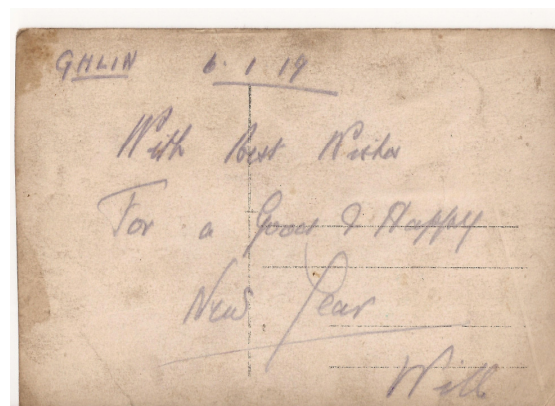 GHLIN 6 1 19
With Best Wishes
For a Good & Happy
New Year
Will